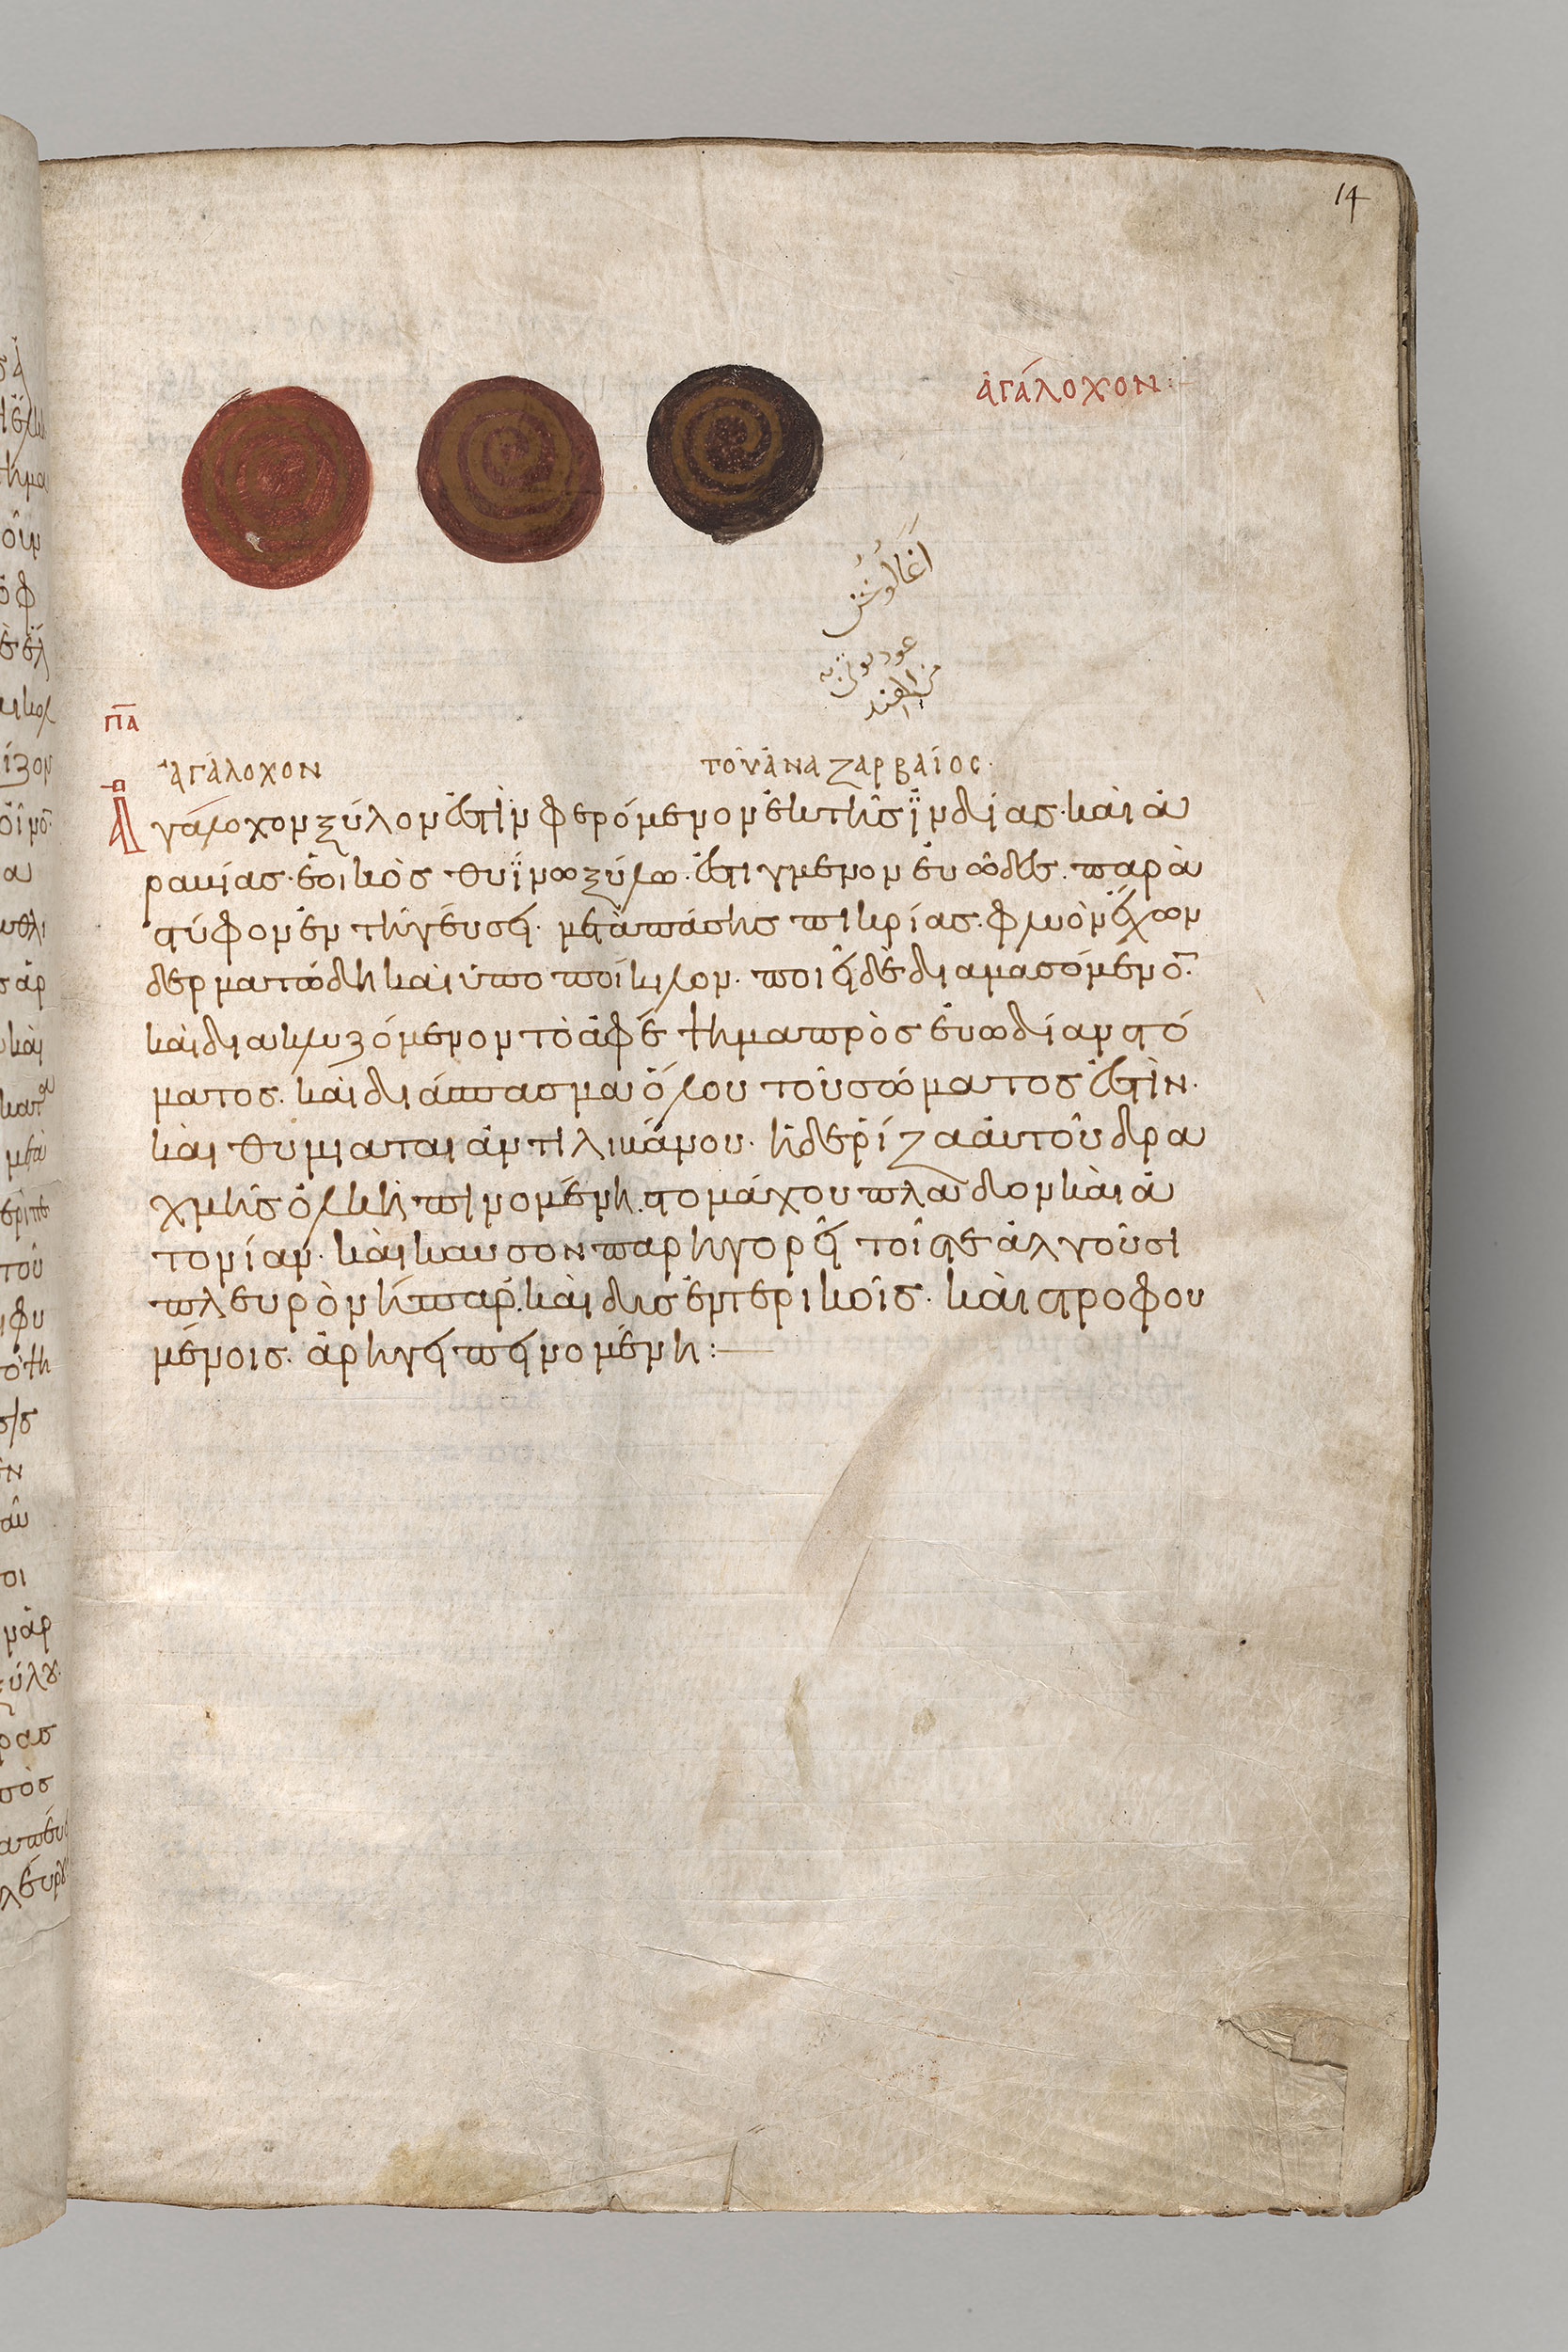 14
ἀγάλοχον:
اغالوش
عود
الهند
πα
ἀγάλοχον τοῦ ἀναζαρβαίος.
Ἀγάλοχον ξύλον ἐστὶν φερόμενον ἐκ τῆς ϊνδίας· καὶ ἀ
ραβίας· ἐοικὸς θυΐνω ξύλω· ἐστιγμενον ἐυῶδες. παρὰ
στύφον ἐν τῆ γεύσει· μετὰ πάσης πικρίας. φλυὸν ἔχων
δερματώδη καὶ ὑποποίκιλον. ποιεῖ δὲ διαμασόμενο̅.
καὶ διακλυζόμενον τὸ ἀφέψημα πρὸς ἐυωδίαν στό
ματος. καὶ διάπασμα ὅλου τοῦ σώματος ἐστὶν.
καὶ θυμιαται ἀντὶ λιβάνου· ἡ δε ρίζα ἀυτοῦ δρα
χμῆς ὁλκὴ πινομένη. στομάχου πλάδον καὶ ἀ
τονίαν· καὶ καυσον παρηγορεῖ τοῖς τε ἀλγοῦσι
πλευρὸν ἡπαρ. καὶ δυσεντερικοῖς· καὶ στροφου
μένοις. ἀρήγει πεινομένη: